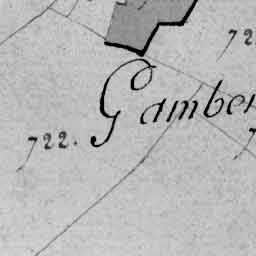 72
Gamber
722.